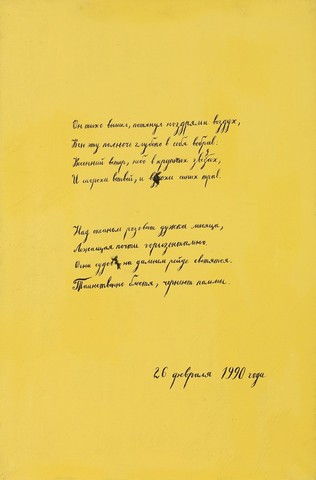 Он тихо вышел, потянул ноздрями воздух,
Всю ту полночь глубоко в себя вобрав.
Весенний ветер, небо в крупных звёздах,
И шорохи ветвей, и вздохи сонных трав.
Над океаном розовый дужка месяца,
Лежащая почти горизонтально.
Огни судов на дальнем рейде светятся.
Таинственно блестя, чернеют пальмы.
26 февраля 1990 года